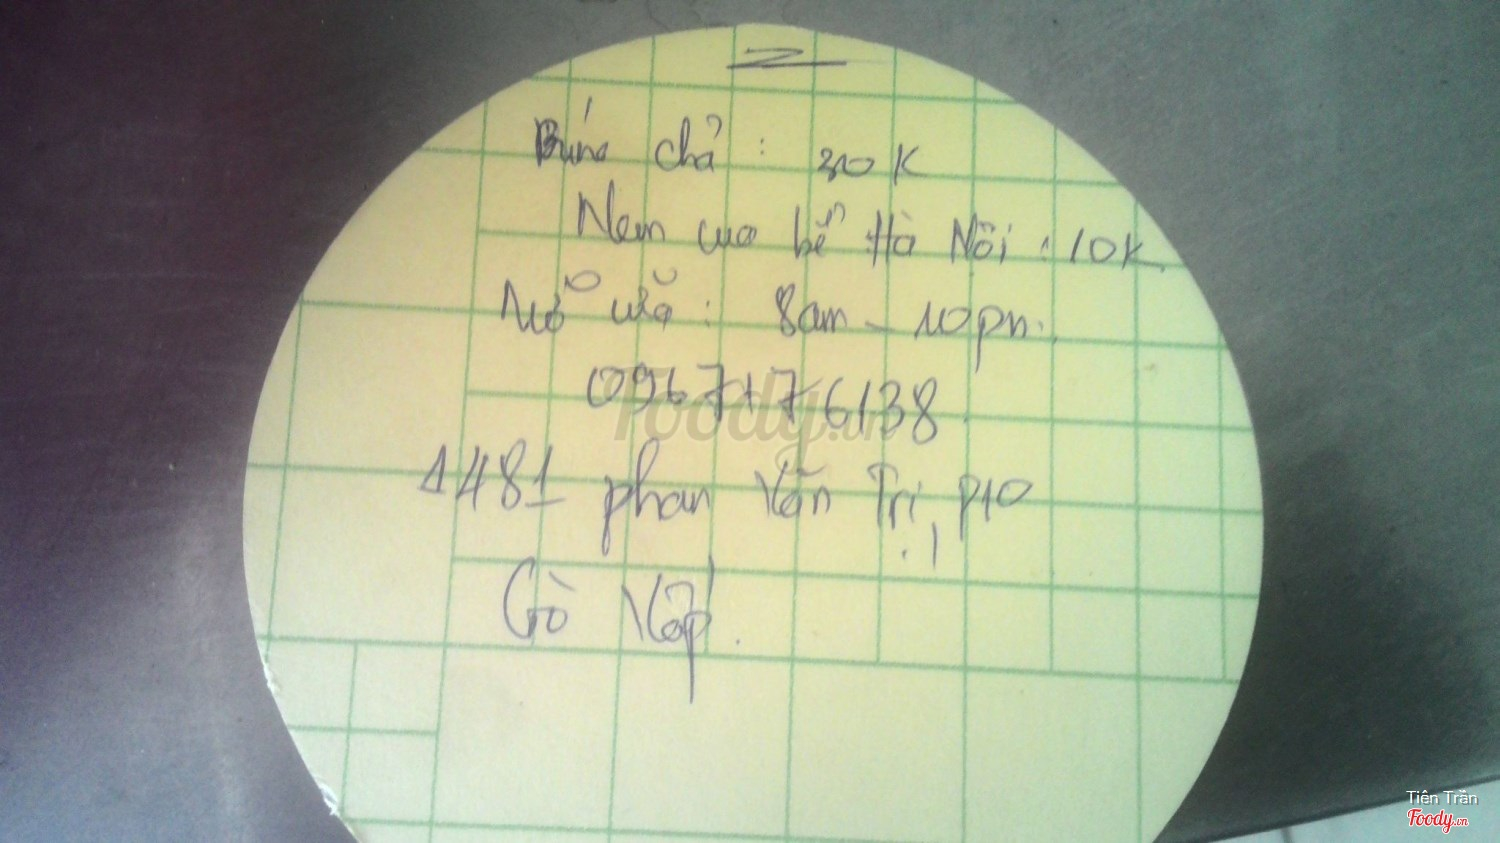 Bún chả : 30K
Nem cua bể Hà Nội : 10K
Mở cửa : 8am - 10pm.
0967176138
1481 phan Văn Trị, P10
Gò Vấp.
Foody.vn
Tiên Trần
Foody.vn